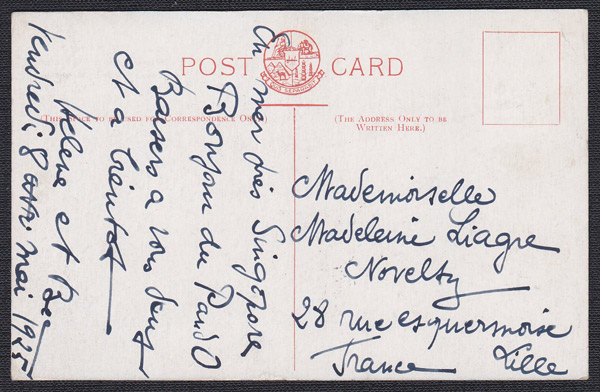 POST CARD
(THIS SPACE TO BE USED FOR CORRESPONDENCE ONLY.)
(THE ADDRESS ONLY TO BE
WRITTEN HERE.)
En mer près Singapore
Bonjour du P and O
Baisers a vous deux
et a bientot
Helene et
Vendredi 8 mai 1925
Mademoiselle
Madeleine Liagre
Novelty
28 rue esquermoise
France Lille